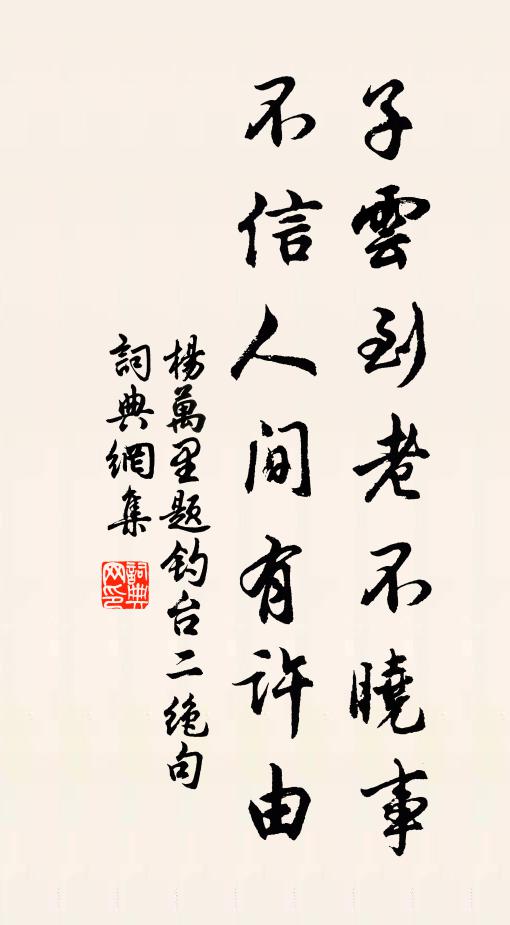 子雲到老不曉事
不信人間有許由
楊萬里題釣台二絕句
詞典網集
詞典网印